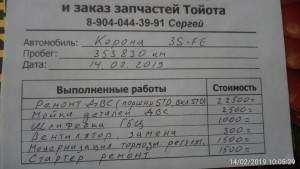 и заказ запчастей Тойота
8-904-044-39-91 Сергей
Автомобиль: Корона 3S-FE
Пробег: 353830 км
Дата: 14.02.2019
Выполненные работы Стоимость
Ремонт ДВС (поршни STD, вкл STD 22500=
Мойка деталей ДВС 2500=
Шлифовка ГБЦ 1000=
Вентилятор, замена 300=
тормозы, регул. 1500=
Стартер ремонт 1500=
14/02/2019 10:05:29